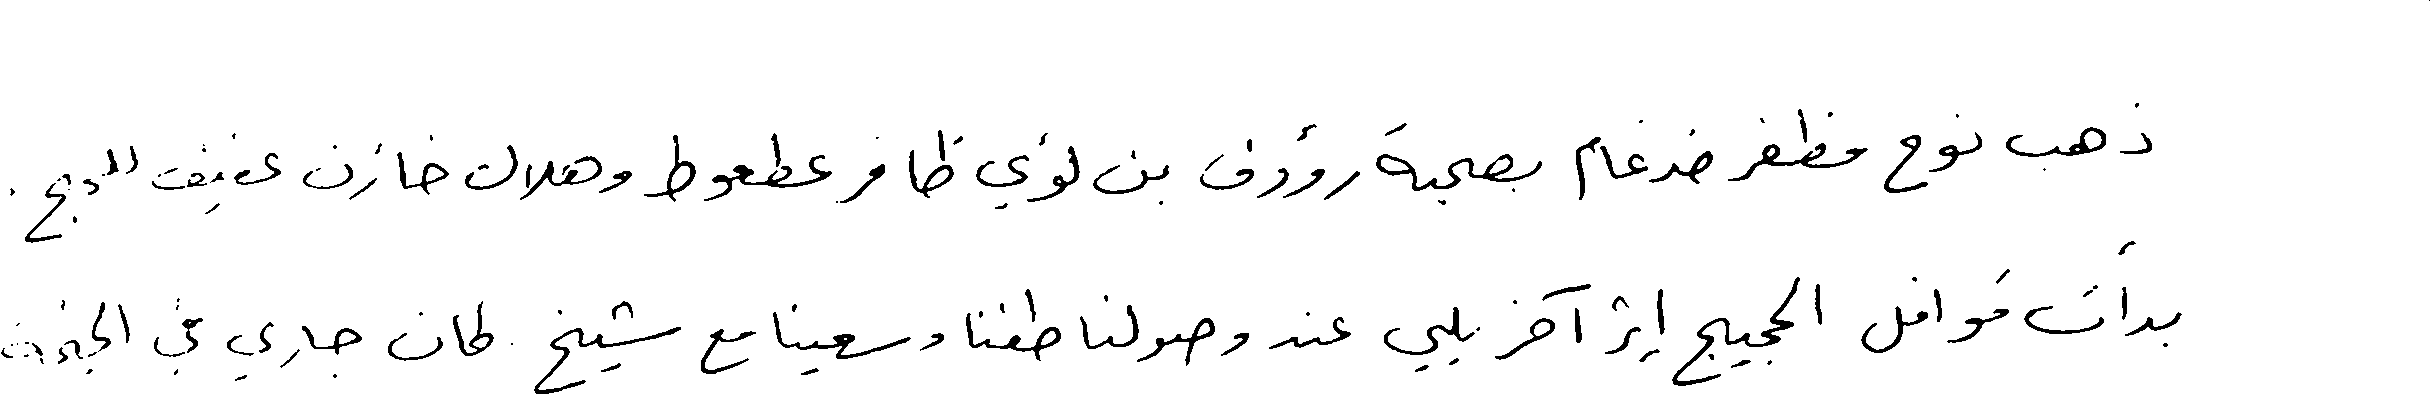 ذهب نوح مظفر ضرغام بصحبة رؤوف بن لؤي ظافر عطعوط وهلال خازن عفيف للحج.
بدأت قوافل الحجيج إثر آخر يلبي عند وصولنا طفنا وسعينا مع شيخ كان جاري في الخيمة